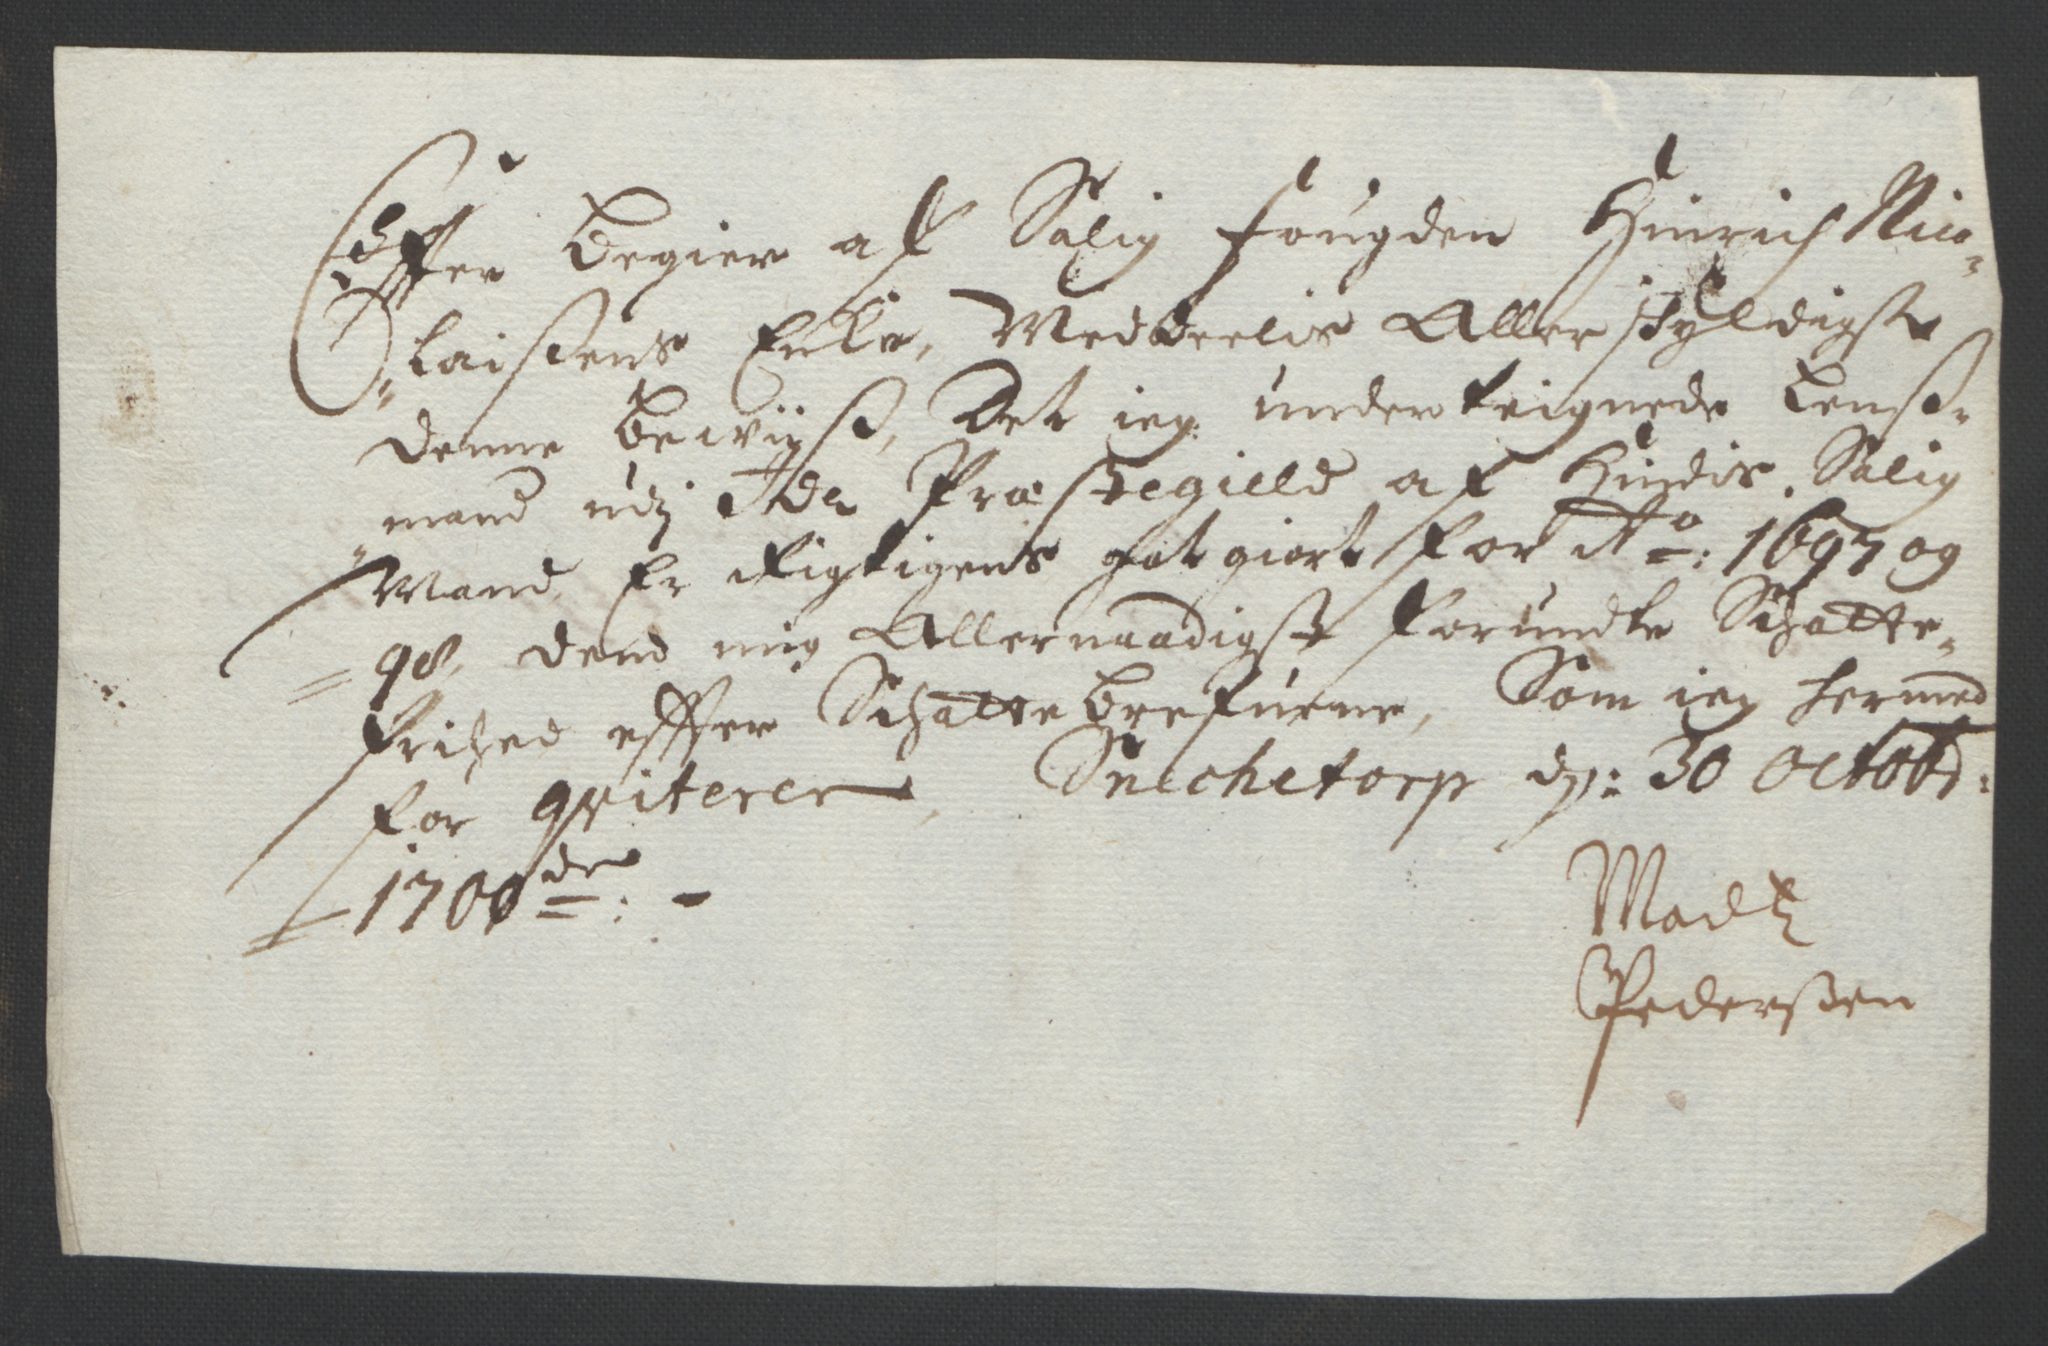 Effter Begier af Salig fougden Hinrich Nico=
=laisens Enke, Meddeelis Allerskyldigst
denne Bewiiß, Det ieg underteignede Lenß=
mand udj Ide Præstegield af Hindis Salig
Mand Er Rigtigens got giort for Ao: 1697 og
=98, dend mig Allernaadigst forundte Schatte=
frihed effter Schattebrefuene, Som ieg hermed
for qviterer, Snechetorp dn: 30 Octobr:
1700de: -
Madtz
Pederßen